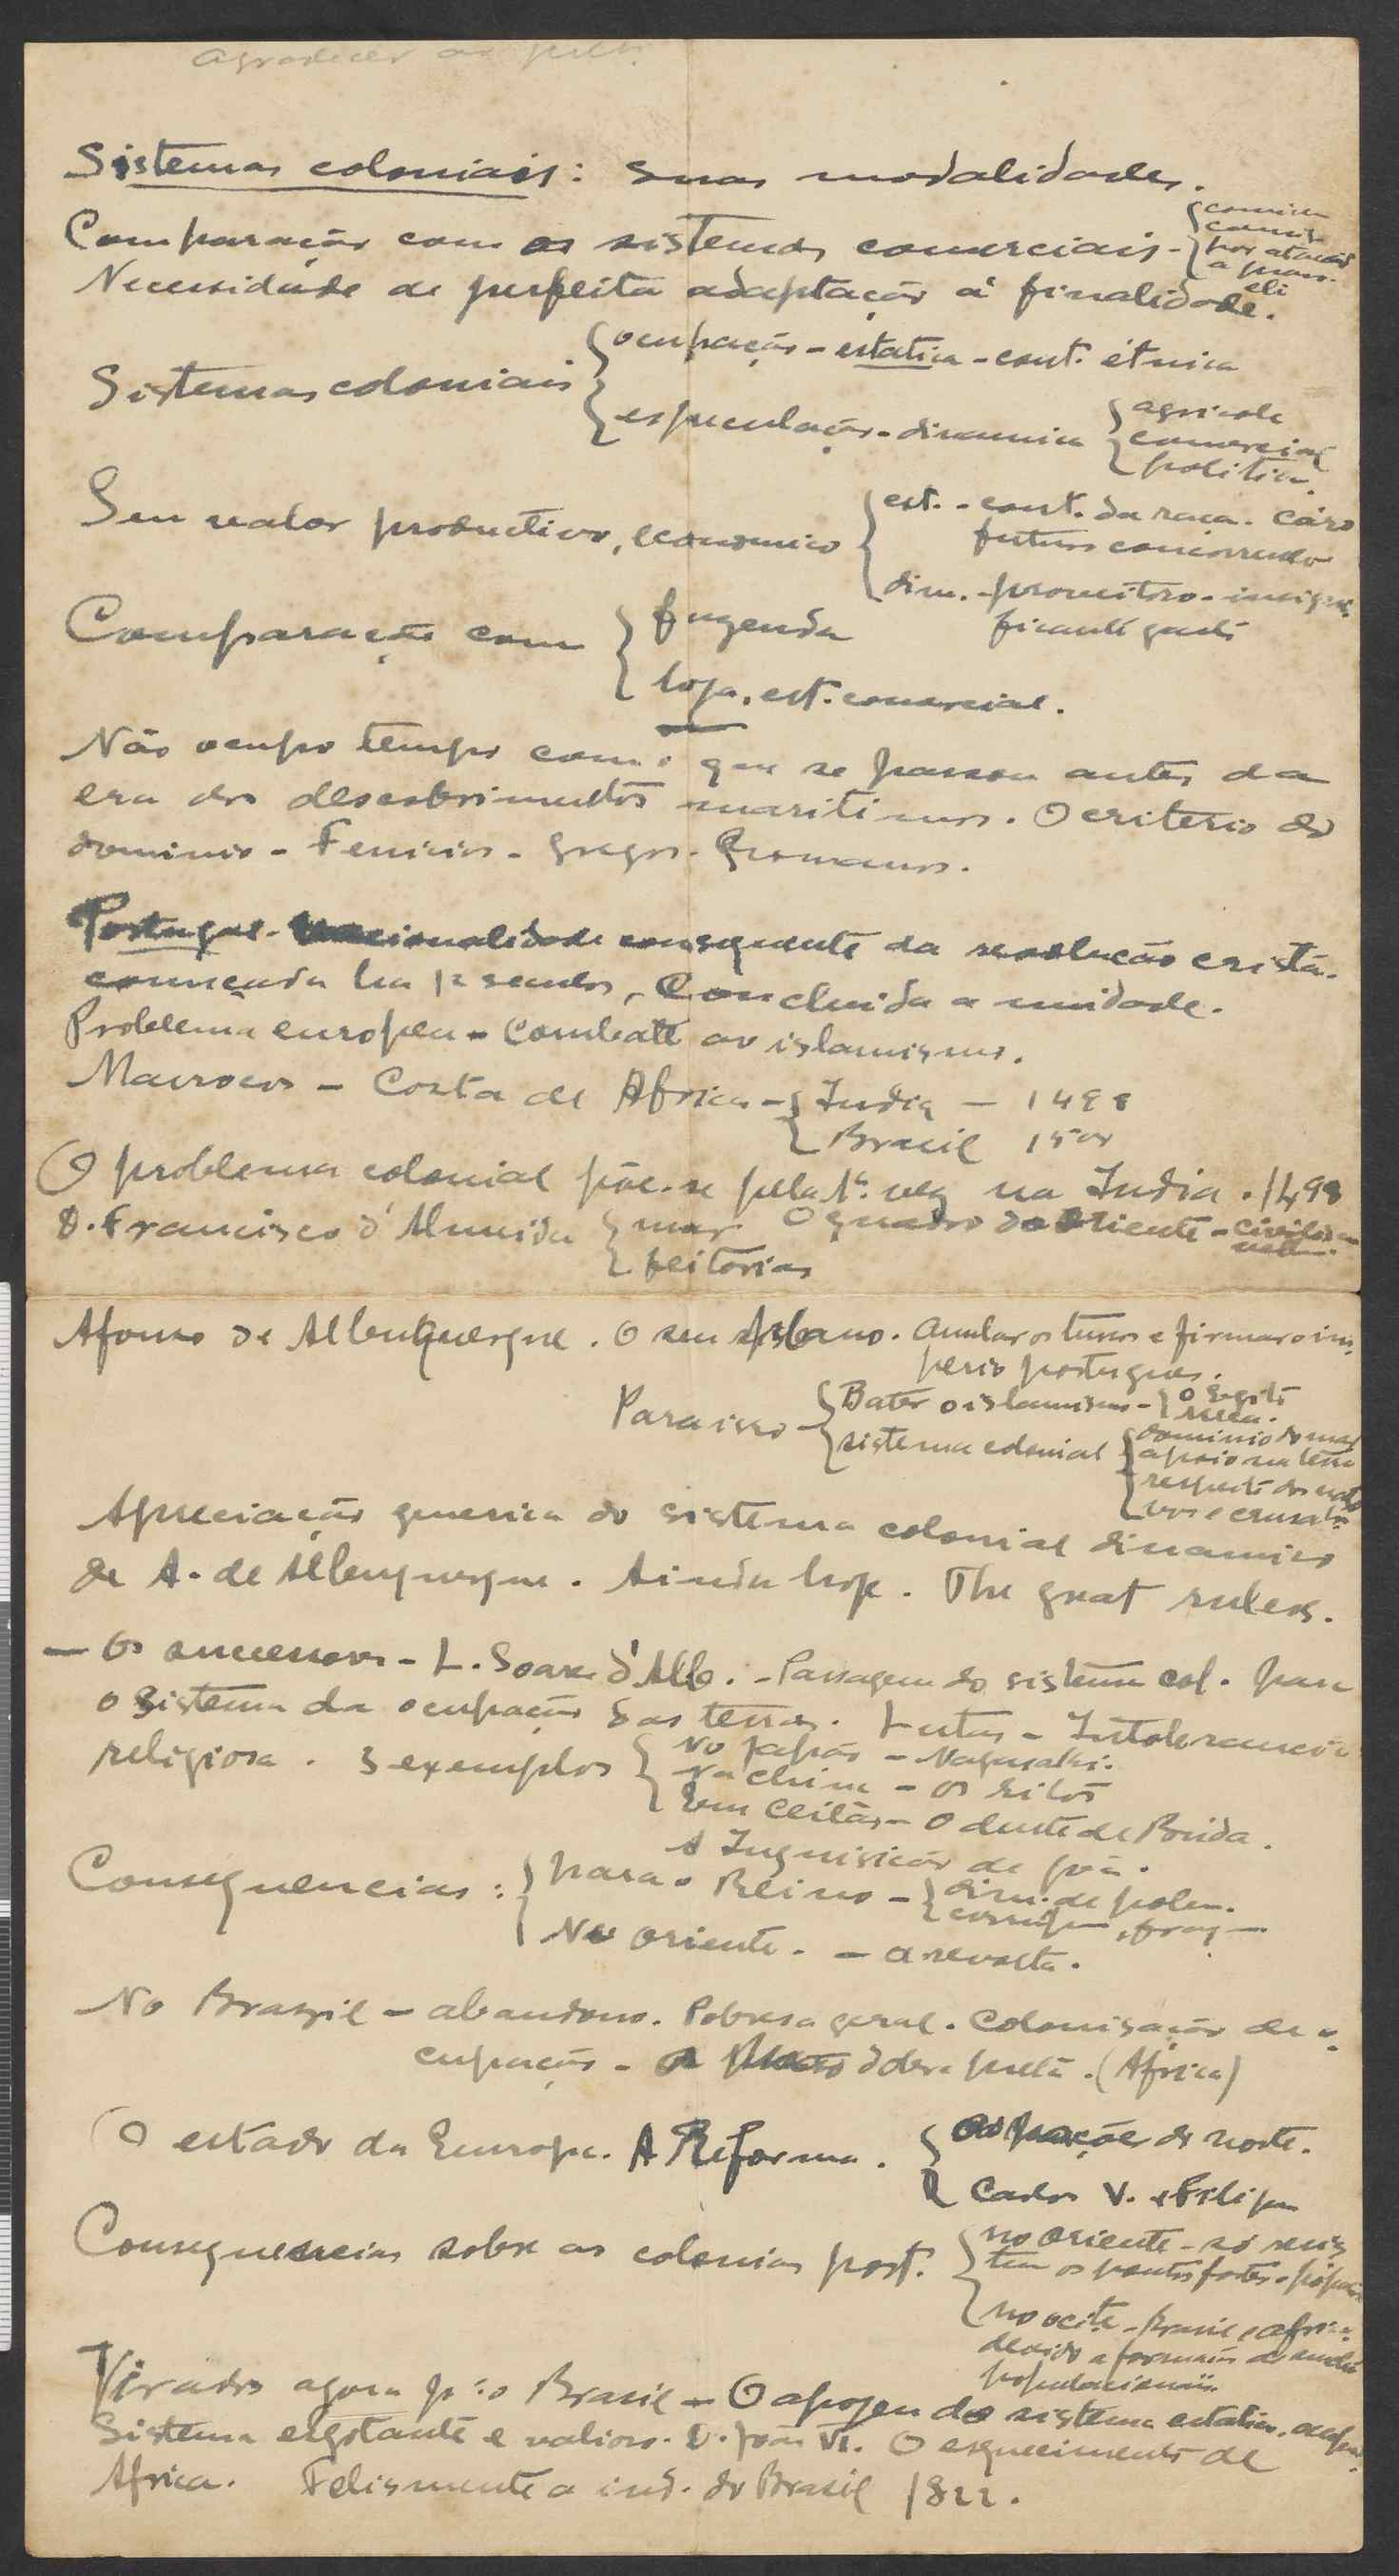 Agradecer ao
Sistemas coloniais: suas modalidades.
Comparação com os sistemas comerciais -
por atacado
Necessidade de perfeita adaptação á finalidade.
ocupação - estatica - cont. étnica
Sistemas coloniais
especulação - dinamica
agricola
comercial
politica.
est. - cont. da raça. Cáro
Seu valor productivo, economico
futuro concorrendo
dim. - prometedor - insigni-
ficante gasto
Comparação com
fazenda
loja, est. comercial.
Não ocupo tempo com o que se passou antes da
era dos descobrimentos maritimos. O criterio do
dominio - Fenicios - Gregos - Romanos.
Portugal - nacionalidade consequente da revolução cristã.
começada ha 12 seculos, Concluida a unidade.
Problema europeu - Combate ao islamismo.
Marrocos - Costa de Africa -
India - 1498
Brasil 1500
O problema colonial põe-se pela 1ª vez na India. 1498
D. Francisco d'Almeida
mar
O quadro do Oriente -
feitorias
Afonso de Albuquerque. O seu plano. Anular os turcos e firmar o im-
perio portugues.
Para isso -
Bater o islamismo -
o Egito
Meca.
sistema colonial
dominio do mar
apoio na terra
respeito dos
Apreciação generica do sistema colonial dinamico
de A. de Albuquerque. Ainda hoje. The great rulers.
- Os sucessores - L. Soares d'Alb. - Passagem do sistema col. para
o sistema da ocupação das terras. Lutas - Intolerancia
religiosa. 3 exemplos
No Japão -
Na China - os ritos
Em Ceilão - O dente de Bouda.
A Inquisição de Goa.
Consequencias:
para o Reino -
dim. de
No Oriente. - a revolta.
No Brazil - abandono. Pobresa geral. Colonisação de o-
cupação - (Africa)
O estado da Europa. A Reforma.
do norte.
Carlos V. e Filipe
Consequencias sobre as colonias port.
no Oriente - só resis-
tem os pontos fortes
no ocite. Brasil e Africa
devido a formação de
Virados agora p.ª o Brasil - O apogeu do sistema estatico,
Sistema esgotante e valioso. D. João VI. O esquecimento de
Africa. Felismente a ind. do Brasil 1822.